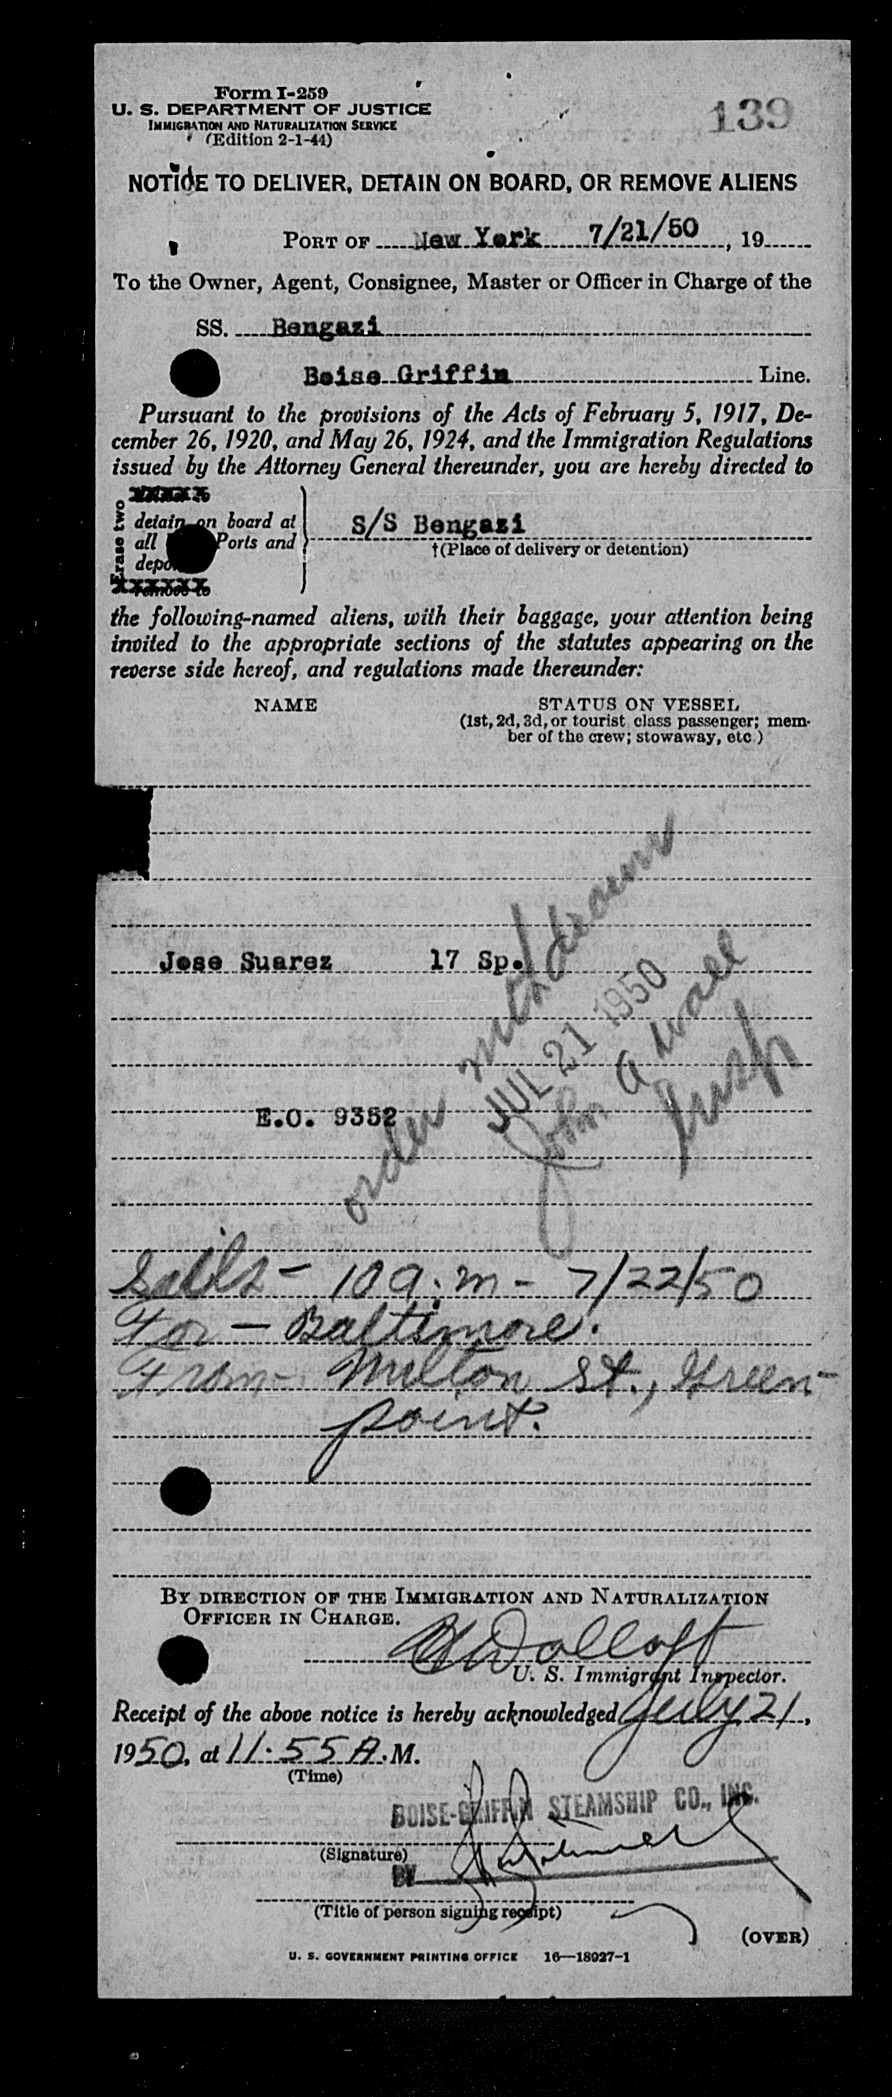 Form I-259
U. S. DEPARTMENT OF JUSTICE
IMMIGRATION AND NATURALIZATION SERVICE
(Edition 2-1-44)
139
NOTICE TO DELIVER, DETAIN ON BOARD, OR REMOVE ALIENS
PORT OF New York 7/21/50, 19
To the Owner, Agent, Consignee, Master or Officer in Charge of the
SS. Bengazi
Boise Griffin Line.
Pursuant to the provisions of the Acts of February 5, 1917, De-
cember 26, 1920, and May 26, 1924, and the Immigration Regulations
issued by the Attorney General thereunder, you are hereby directed to
Erase two
xxxxx
detain on board at
all Ports and
S/S Bengazi
†(Place of delivery or detention)
xxxxxx
remove to
the following-named aliens, with their baggage, your attention being
invited to the appropriate sections of the statutes appearing on the
reverse side hereof, and regulations made thereunder:
NAME
STATUS ON VESSEL
(1st, 2d, 3d, or tourist class passenger; mem-
ber of the crew; stowaway, etc.)
Jose Suarez 17 Sp.
order withdrawn
JUL 21 1950
John A Wall
Insp
E.O. 9352
Sails - 10 a.m - 7/22/50
For - Baltimore.
From - Milton St., Green-
point.
BY DIRECTION OF THE IMMIGRATION AND NATURALIZATION
OFFICER IN CHARGE.
U. S. Immigrant Inspector.
Receipt of the above notice is hereby acknowledged July 21,
1950, at 11:55 A.M.
(Time)
BOISE-GRIFFIN STEAMSHIP CO., INC.
(Signature)
BY
(Title of person signing receipt)
(OVER)
U. S. GOVERNMENT PRINTING OFFICE 16—18927-1